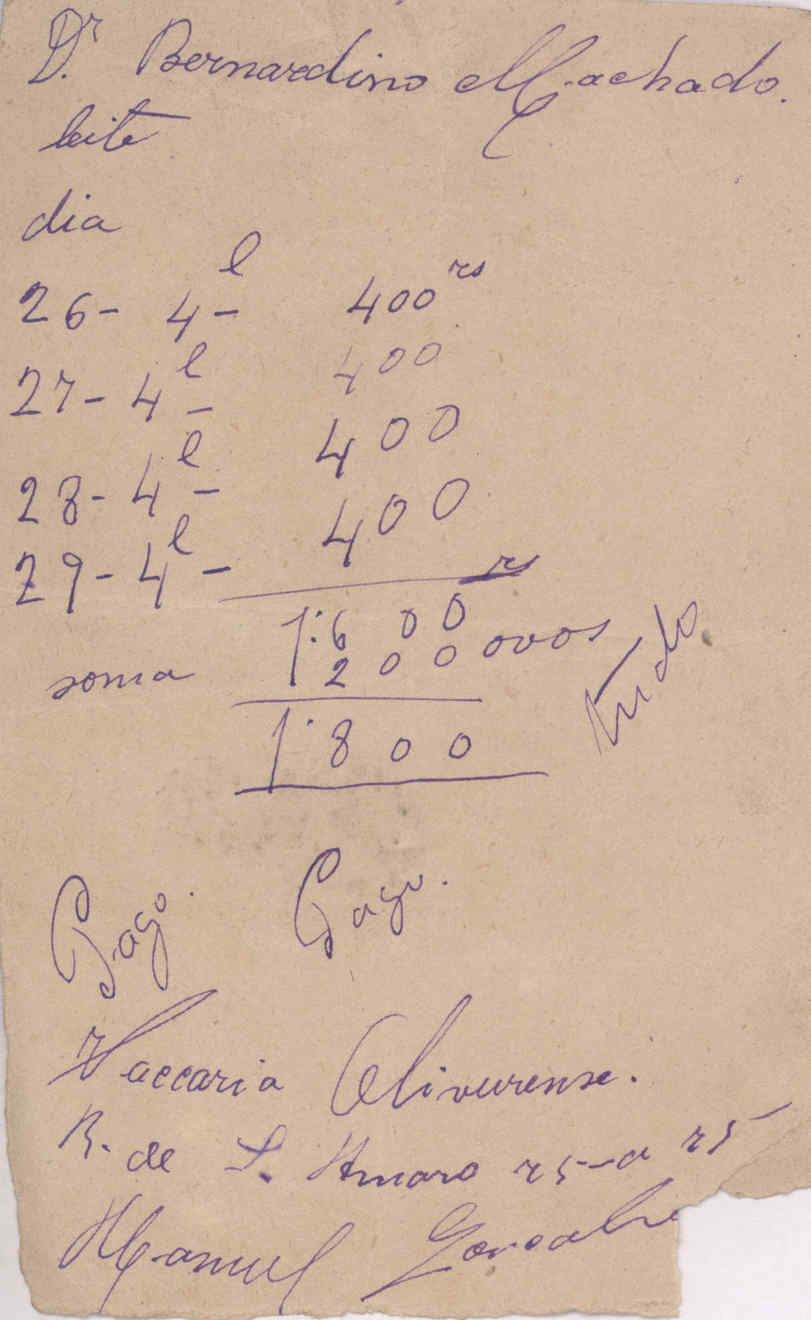 Dr. Bernardino Machado.
leite
dia
26- 4 l - 400 rs
27- 4 l - 400
28- 4 l - 400
29- 4 l - 400
rs
1:600
soma 200 ovos
1:800 tudo
Pago. Pago.
Vaccaria Oliveirense.
R. de S. Amaro 25-a 25
Manuel Gonçalves